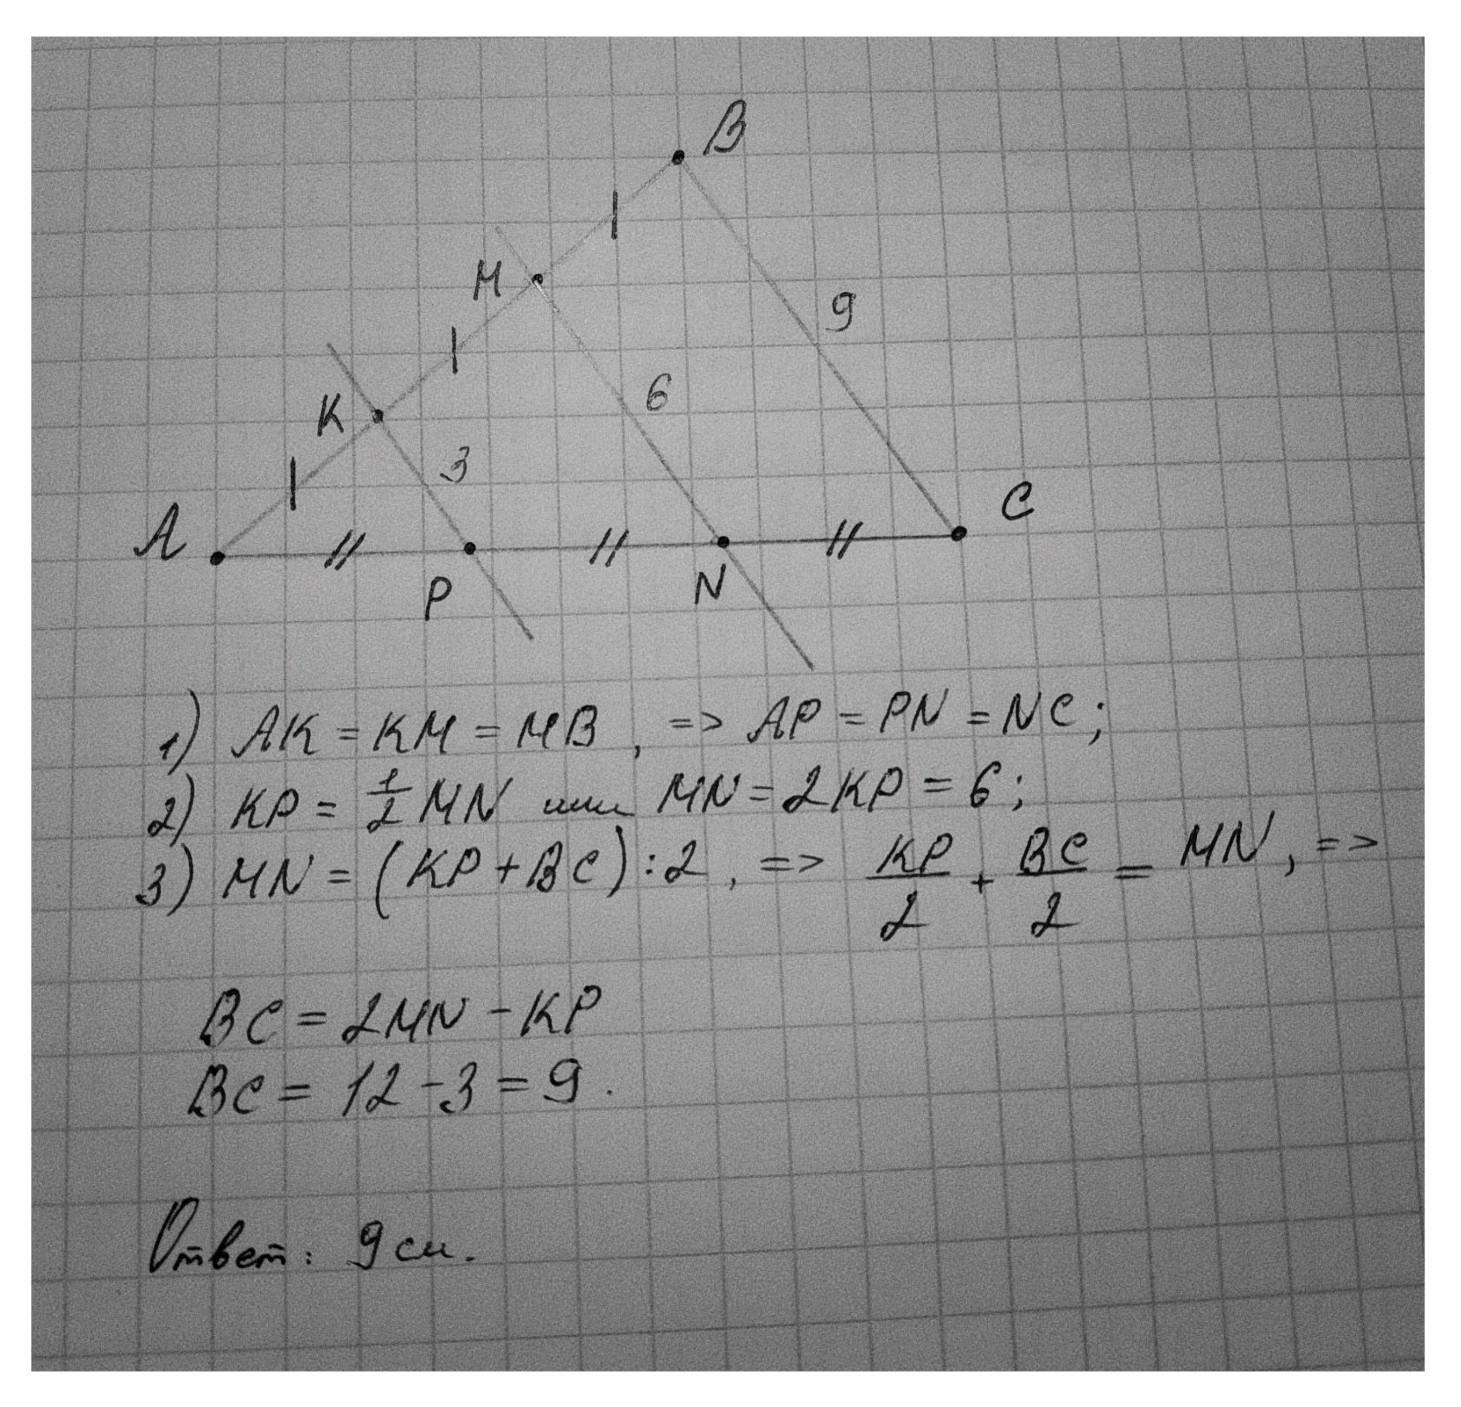 B
M
9
K
6
3
A
C
P
N
1) AK = KM = MB, => AP = PN = NC;
2) KP = 1/2 MN или MN = 2KP = 6;
3) MN = (KP + BC) : 2, => KP/2 + BC/2 = MN, =>
BC = 2MN - KP
BC = 12 - 3 = 9.
Ответ: 9 см.